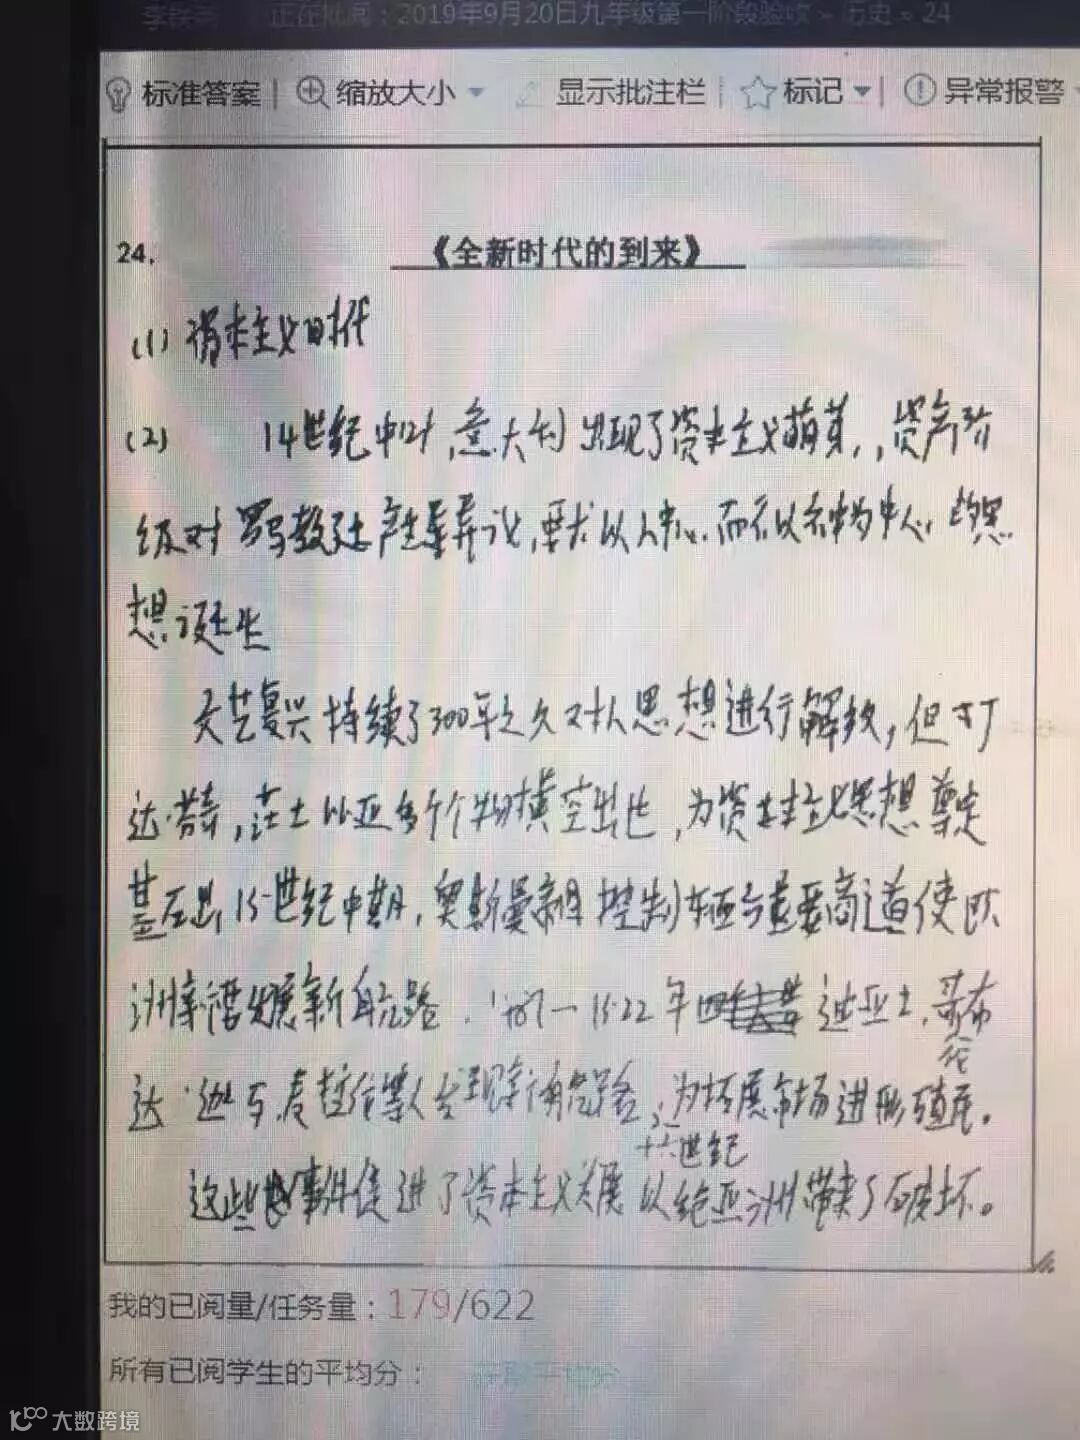 正在批阅：2019年9月20日九年级第一阶段验收 - 历史 - 24
标准答案 | 缩放大小 显示批注栏 | 标记 | 异常报警
24. 《全新时代的到来》
(1) 资本主义时代
(2) 14世纪中叶,意大利出现了资本主义萌芽,,资产阶
级对罗马教廷产生异议,要求以人中心.而不以神为中心,的思
想诞生
文艺复兴持续了300年之久对人思想进行解放,但丁
达·芬奇,莎士比亚多个人物横空出世,为资本主义思想奠定
基石,15世纪中期,奥斯曼帝国控制东西方重要商道使欧
洲希望发展新航路.1487—1522年 迪亚士.哥伦布
达·迦马,麦哲伦等人发现新航路,为拓展市场进行殖民。
十六世纪
这些事件促进了资本主义发展 以给亚洲带来了破坏。
我的已阅量/任务量：179/622
所有已阅学生的平均分：
大数跨境